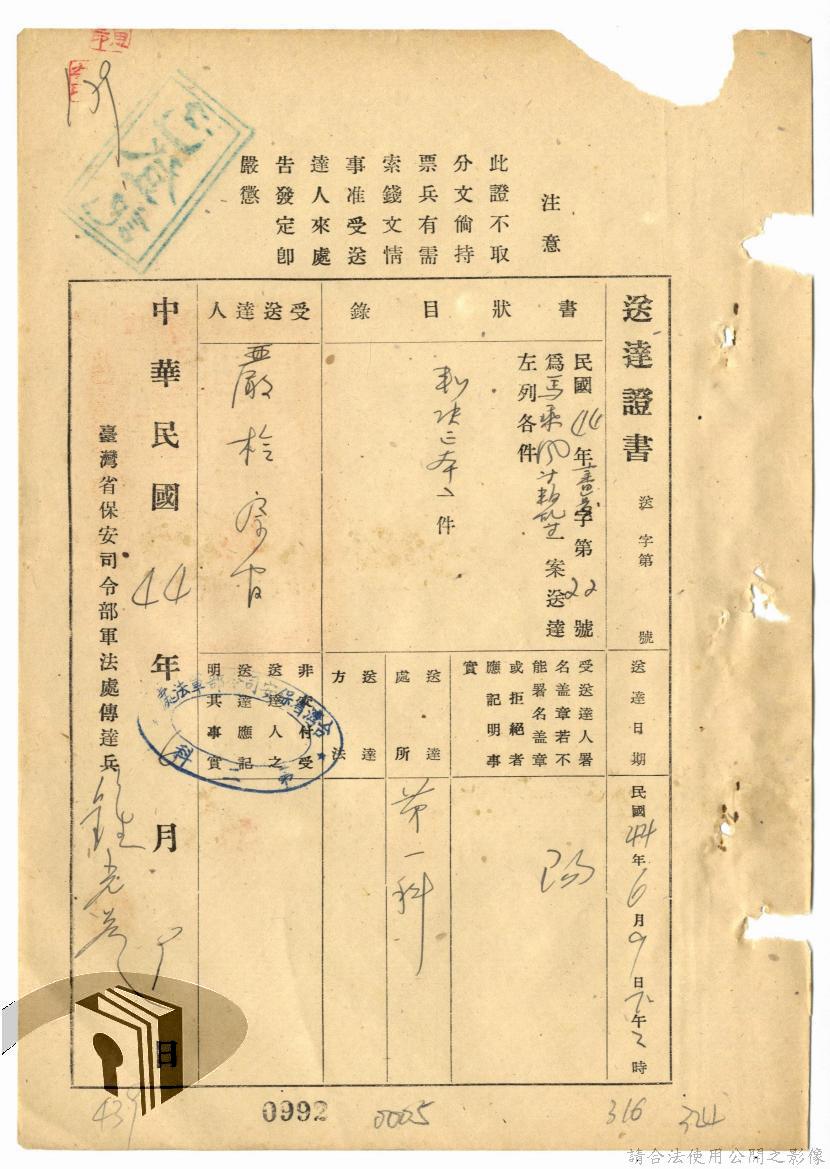 注意
此證不取
分文倘持
票兵有需
索錢文情
事准受送
達人來處
告發定卽
嚴懲
送達證書
送字第 號
送達日期
民國44年6月9日下午2時
書狀目錄
民國44年審字第22號
為馬乘風等叛亂案送達
左列各件
判決正本 件
受送達人署
名蓋章若不
能署名蓋章
或拒絕者
應記明事
實
送達處所
第一科
送達方法
受送達人
嚴檢察官
非交付受
送達人之
送達應記
明其事實
台灣省保安司令部軍法處
第二科
中華民國44年6月9日
臺灣省保安司令部軍法處傳達兵
439
0992
0005
316
324
請合法使用公開之影像